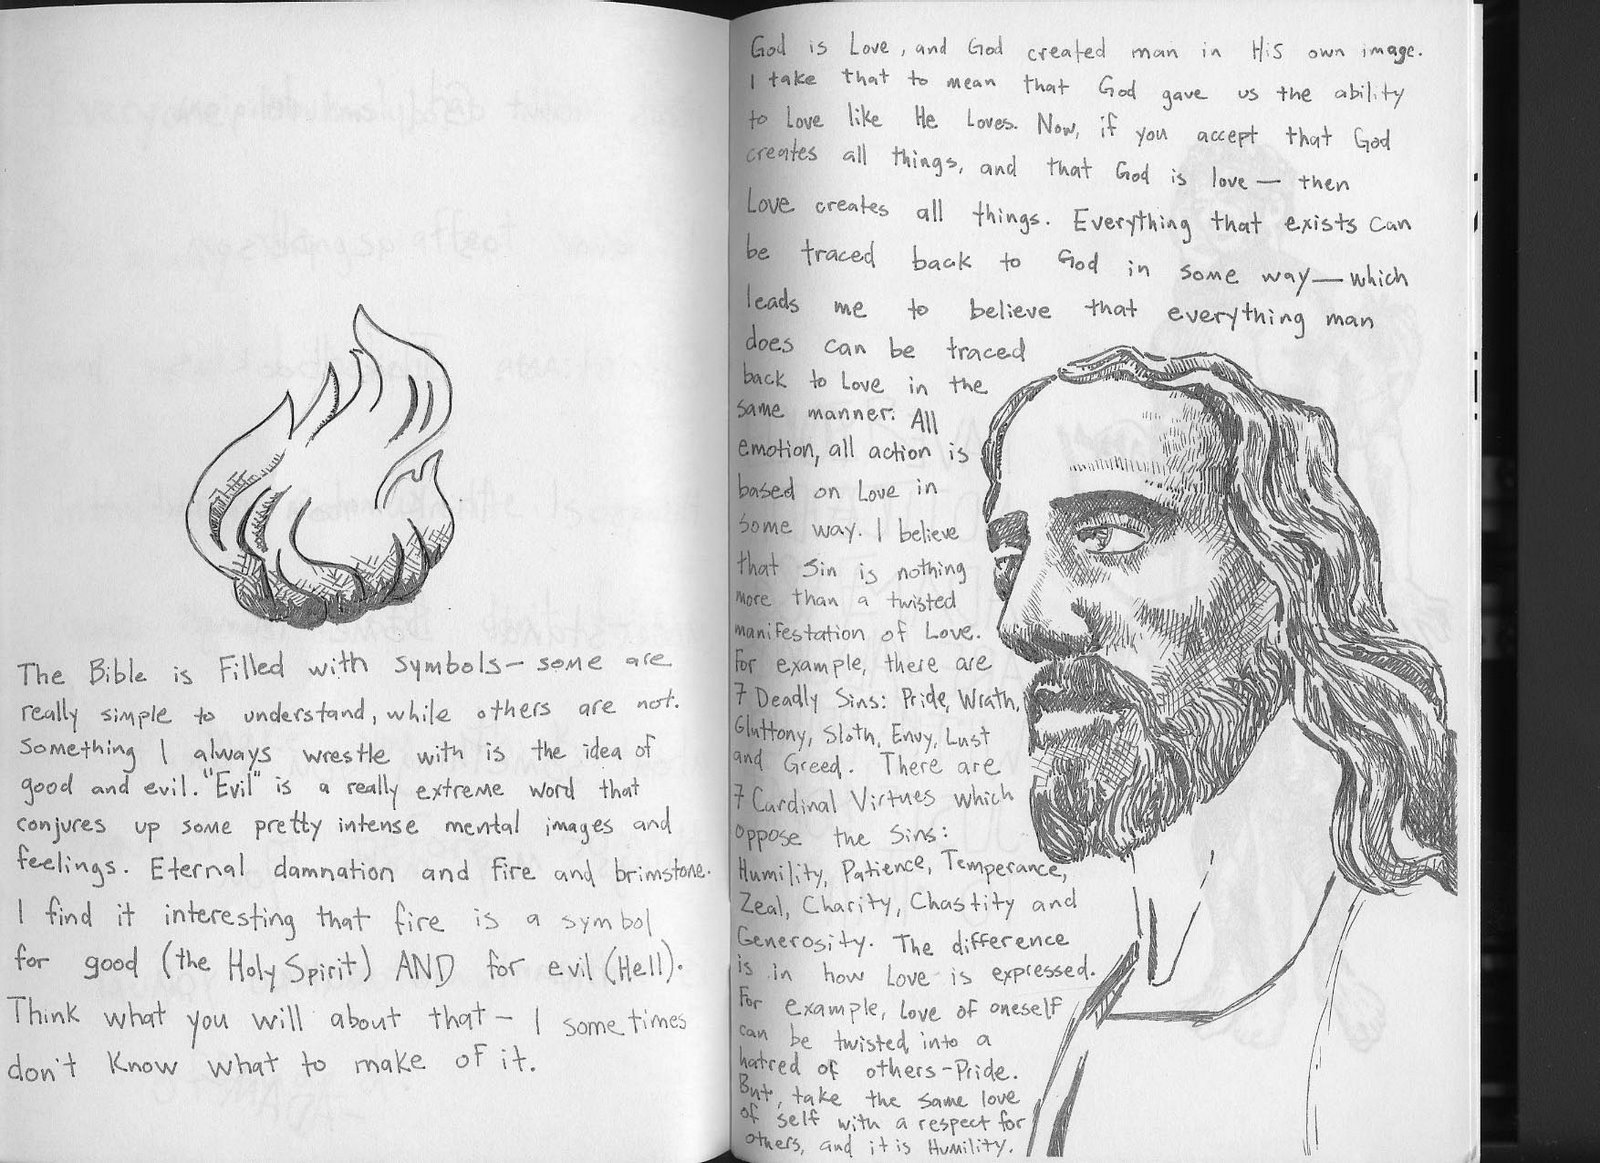 The Bible is Filled with symbols— some are
really simple to understand, while others are not.
Something I always wrestle with is the idea of
good and evil. "Evil" is a really extreme word that
conjures up some pretty intense mental images and
feelings. Eternal damnation and fire and brimstone.
I find it interesting that fire is a symbol
for good (the Holy Spirit) AND for evil (Hell).
Think what you will about that— I sometimes
don't know what to make of it.
God is Love, and God created man in His own image.
I take that to mean that God gave us the ability
to Love like He Loves. Now, if you accept that God
creates all things, and that God is love— then
Love creates all things. Everything that exists can
be traced back to God in some way—which
leads me to believe that everything man
does can be traced
back to Love in the
same manner. All
emotion, all action is
based on Love in
some way. I believe
that Sin is nothing
more than a twisted
manifestation of Love.
For example, there are
7 Deadly Sins: Pride, Wrath,
Gluttony, Sloth, Envy, Lust
and Greed. There are
7 Cardinal Virtues which
oppose the Sins:
Humility, Patience, Temperance,
Zeal, Charity, Chastity and
Generosity. The difference
is in how Love is expressed.
For example, Love of oneself
can be twisted into a
hatred of others-Pride.
But, take the same love
of self with a respect for
others, and it is Humility.